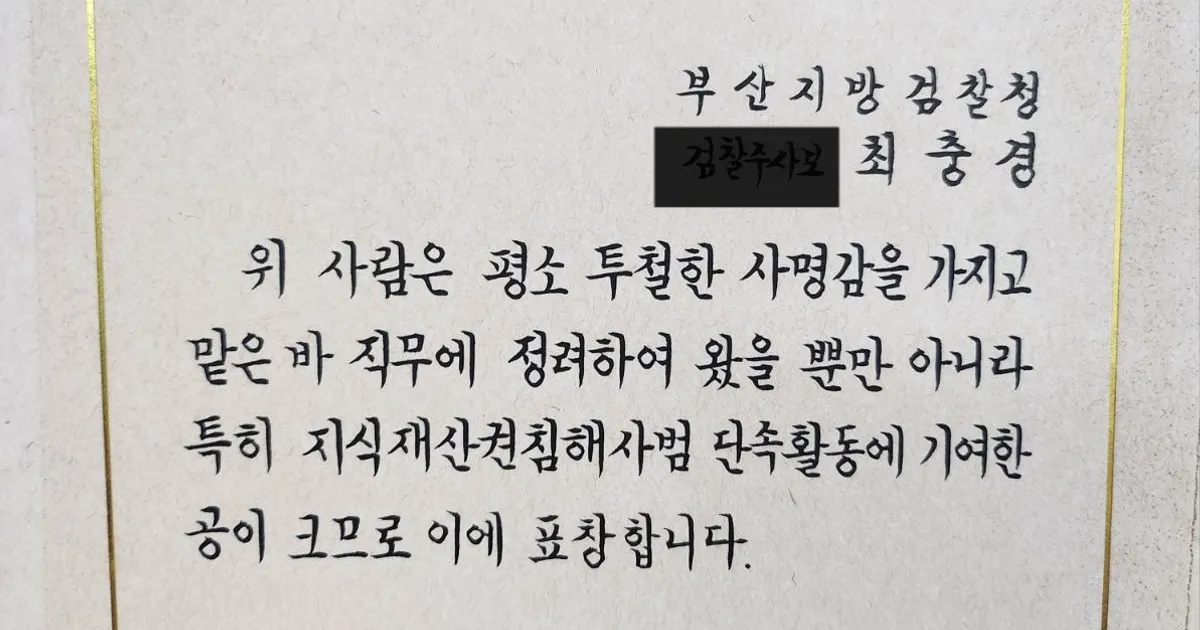 부산지방검찰청
검찰주사보 최충경
위 사람은 평소 투철한 사명감을 가지고
맡은 바 직무에 정려하여 왔을 뿐만 아니라
특히 지식재산권침해사범 단속활동에 기여한
공이 크므로 이에 표창합니다.